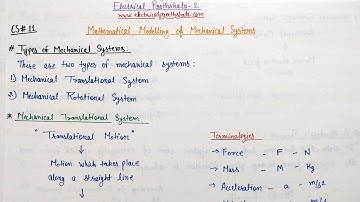 Electrical Paathshala-2
www.electricalpaathshala.com
CS#11
Mathematical Modelling of Mechanical Systems
# Types of Mechanical Systems:
There are two types of mechanical systems:
1) Mechanical Translational System
2) Mechanical Rotational System
* Mechanical Translational System
"Translational Motion"
↓
Motion which takes place
along a straight line
↓
Terminologies
→ Force - F - N
→ Mass - M - Kg
→ Acceleration - a - m/s2